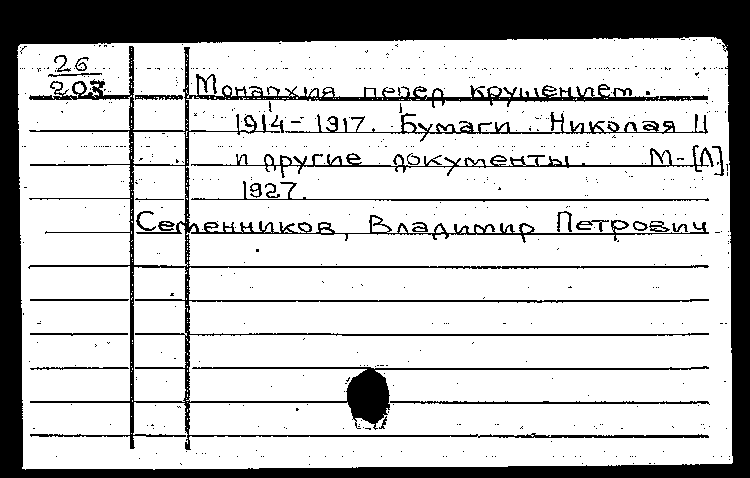 26
203
Монархия перед крушением.
1914-1917. Бумаги Николая II
и другие документы. М-[Л]
1927.
Семенников, Владимир Петрович